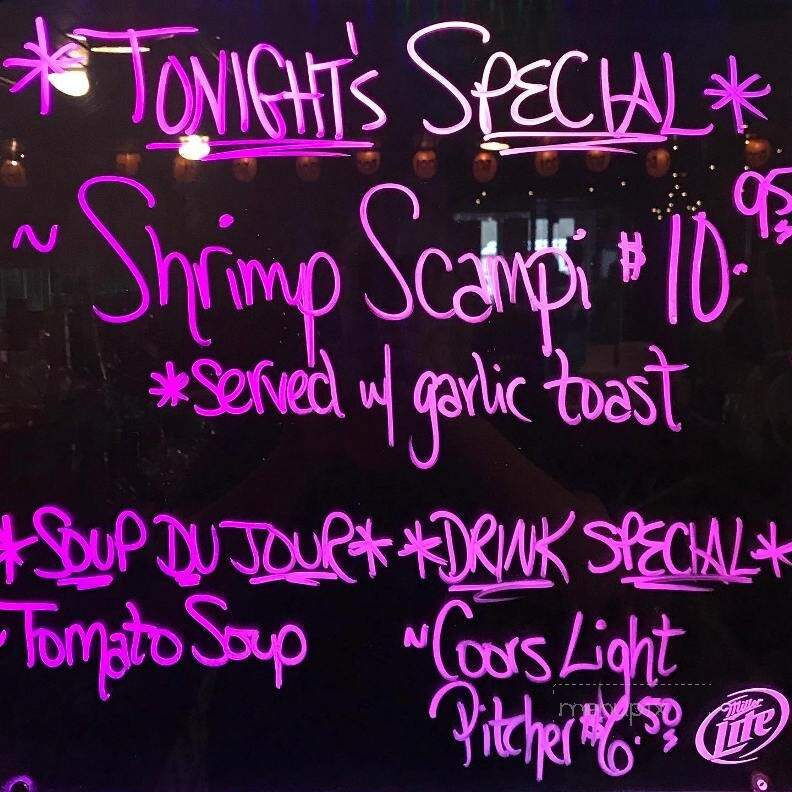 * TONIGHT's SPECIAL *
~ Shrimp Scampi $10.95
*served w/ garlic toast
*SOUP DU JOUR*
~Tomato Soup
*DRINK SPECIAL*
~Coors Light
Pitcher $6.50
Miller Lite
menupix